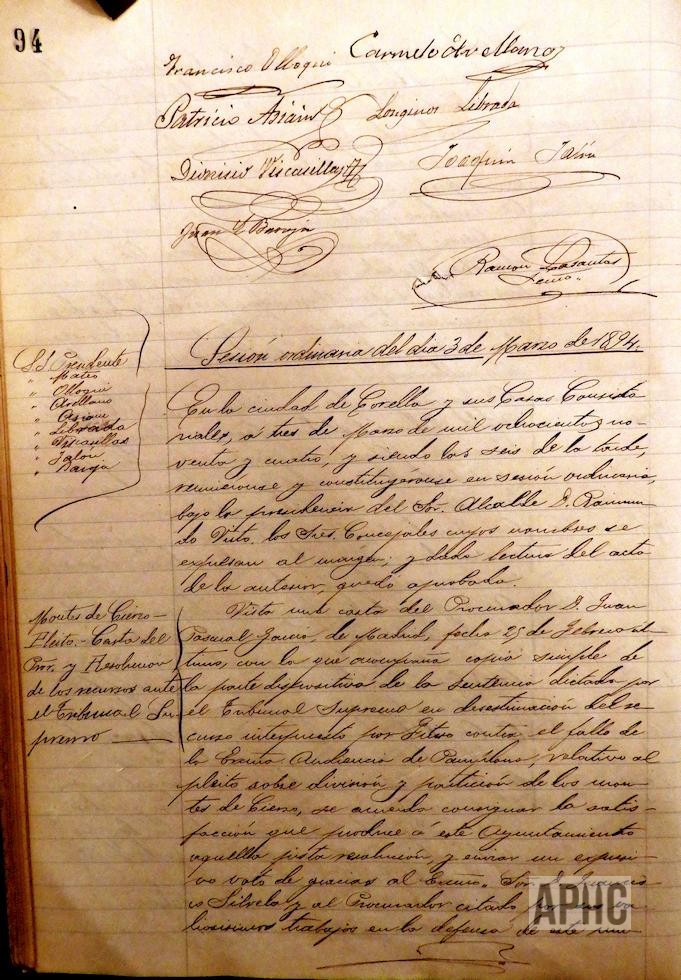 94
Francisco Olloqui Carmelo Arellano
Patricio Asiain Longinos Librada
Dionisio Viscasillas Joaquin Jalón
Juan Baroja
Ramon
Sesión ordinaria del dia 3 de Marzo de 1894.
S.S. Presidente
" Mateo
" Olloqui
" Arellano
" Asiain
" Librada
" Viscasillas
" Jalon
" Baroja
En la ciudad de Corella y sus Casas Consisto-
riales, á tres de Marzo de mil ochocientos no-
venta y cuatro, y siendo las seis de la tarde,
reunieronse y constituyéronse en sesión ordinaria,
bajo la presidencia del Sor. Alcalde D. Raimun-
do Virto, los Sres. Concejales cuyos nombres se
expresan al margen; y dada lectura del acta
de la anterior, quedó aprobada.
Montes de Cierzo-
Pleito.- Carta del
Pror. y Resolucion
de los recursos ante
el Tribunal Su
premo
Vista una carta del Procurador D. Juan
Pascual de Madrid, fecha 25 de Febrero úl-
timo, con la que acompaña copia simple de
la parte dispositiva de la sentencia dictada por
el Tribunal Supremo en desestimación del re-
curso interpuesto por Fitero contra el fallo de
la Excma Audiencia de Pamplona, relativo al
pleito sobre división y partición de los mon-
tes de Cierzo, se acuerda consignar la satis-
facción que produce á este Ayuntamiento
aquella justa resolución, y enviar un expresi-
vo voto de gracias al Excmo. Sor. D. Francis-
co Silvela y al Procurador citado por sus va-
liosisimos trabajos en la defensa de este
APHC